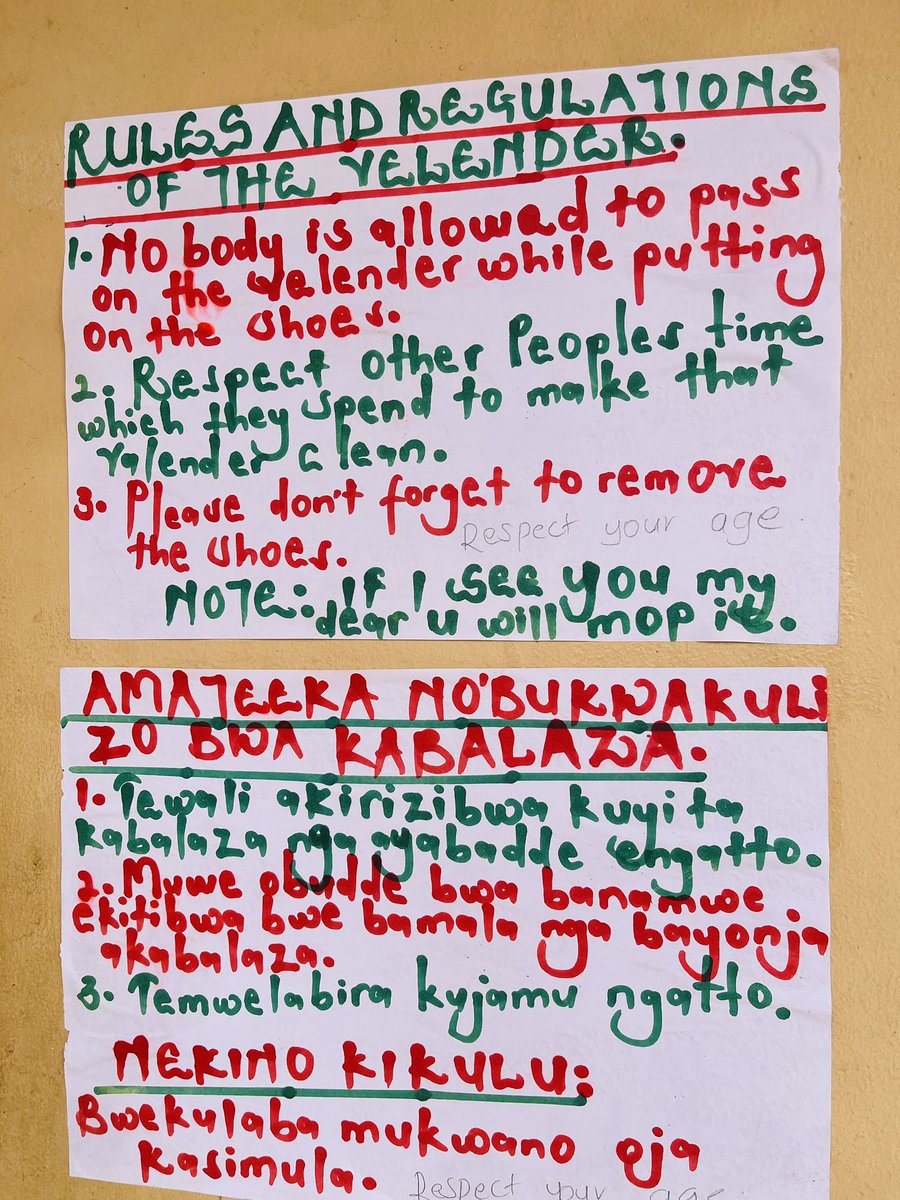 RULES AND REGULATIONS
OF THE VELENDER.
1. No body is allowed to pass
on the velender while putting
on the shoes.
2. Respect other Peoples time
which they spend to make that
valender clean.
3. Please don't forget to remove
the shoes.
Respect your age
NOTE: If I see you my
dear u will mop it.
AMATEEKA NO'BUKWAKULI
ZO BWA KABALAZA.
1. Tewali akirizibwa kuyita
kabalaza nga ayabadde engatto.
2. Muwe obudde bwa banamwe
ekitibwa bwe bamala nga bayonja
akabalaza.
3. Temwelabira kyjamu ngatto.
NEKINO KIKULU:
Bwekulaba mukwano oja
kasimula.
Respect your age